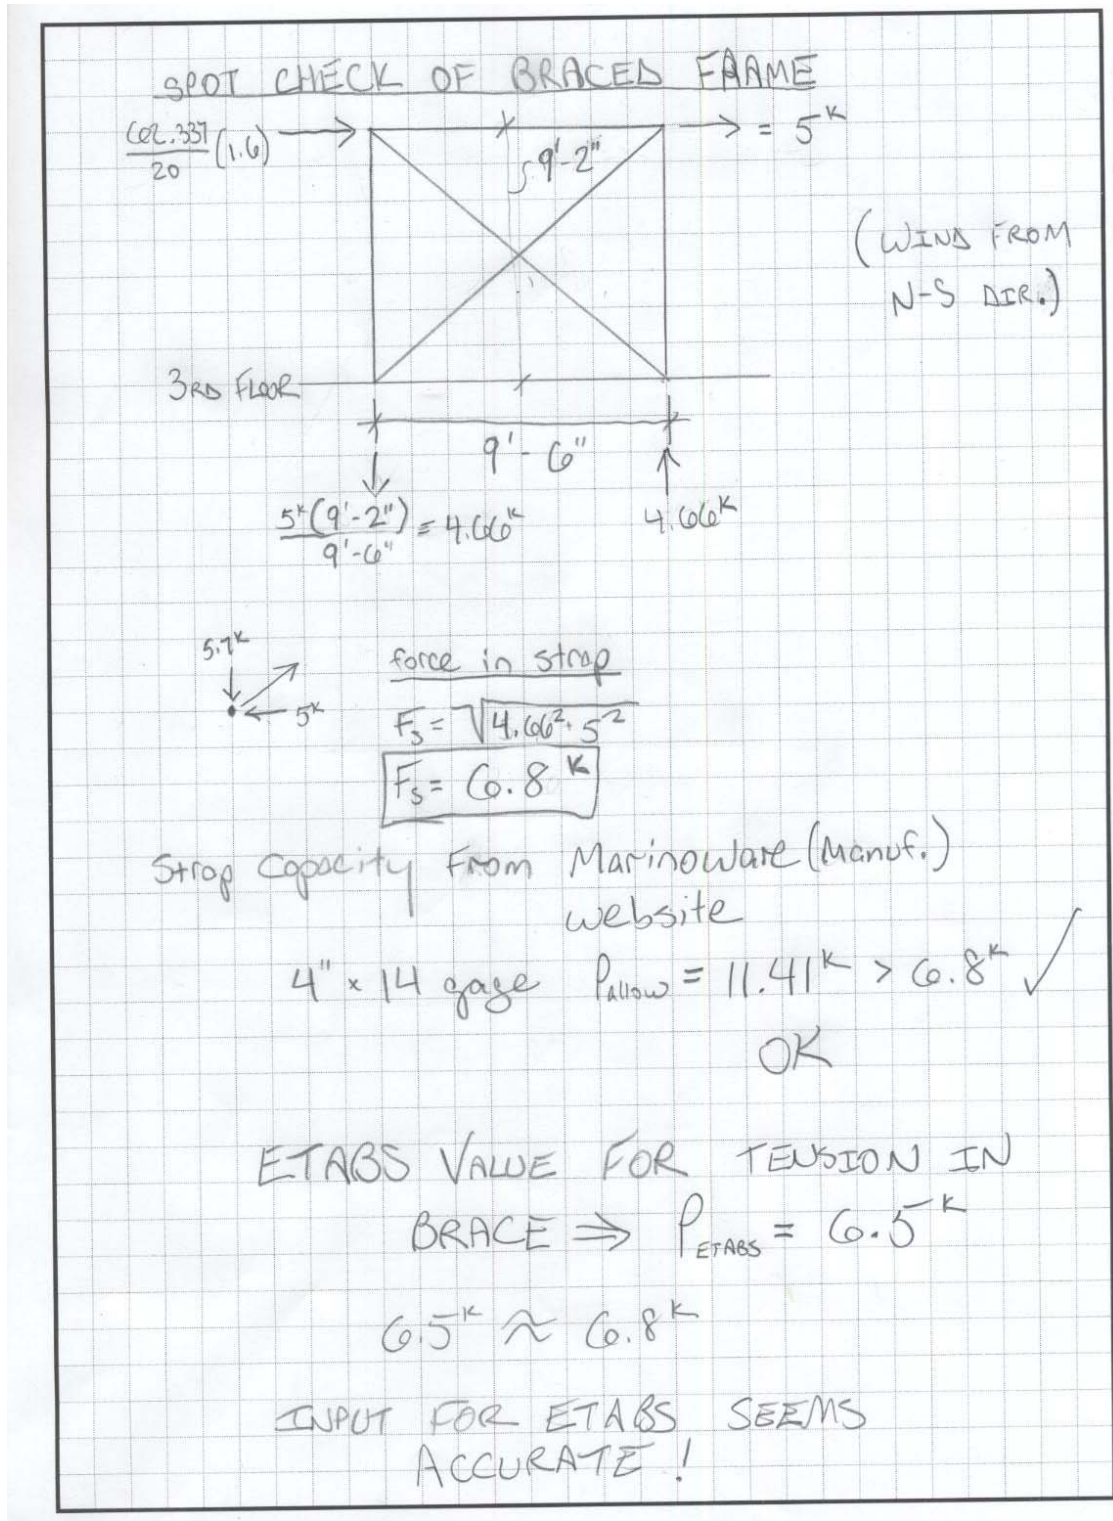 SPOT CHECK OF BRACED FRAME
62.337/20 (1.6) = 5ᴷ
9'-2"
(WIND FROM
N-S DIR.)
3RD FLOOR
9'-6"
5ᴷ(9'-2")/9'-6" = 4.66ᴷ
4.66ᴷ
5.7ᴷ
5ᴷ
force in strap
Fₛ = √4.66²·5²
Fₛ = 6.8ᴷ
Strap Capacity From Marinoware (Manuf.)
website
4" × 14 gage Pallow = 11.41ᴷ > 6.8ᴷ ✓
OK
ETABS VALUE FOR TENSION IN
BRACE ⇒ PETABS = 6.5ᴷ
6.5ᴷ ≈ 6.8ᴷ
INPUT FOR ETABS SEEMS
ACCURATE!